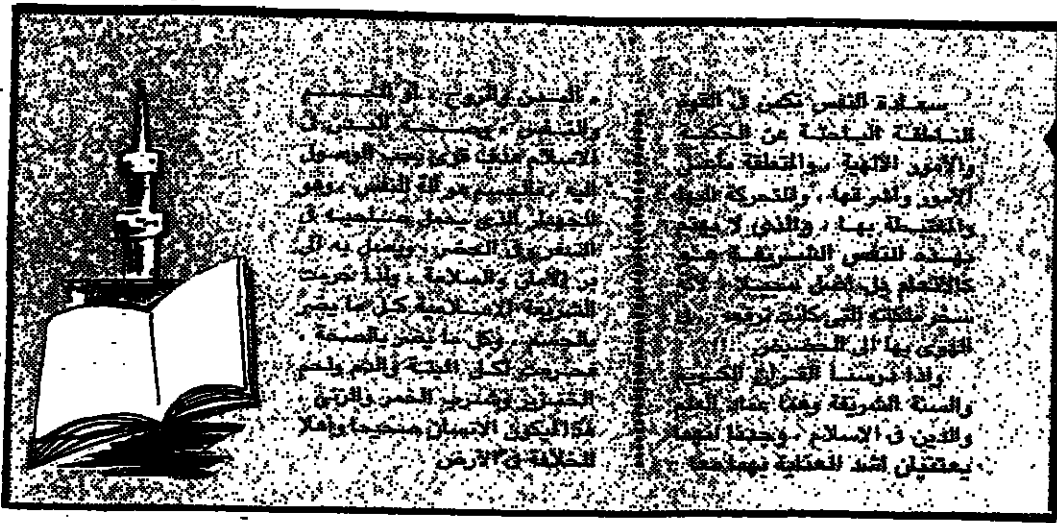 سعادة النفس تكمن في القوة
الناطقة الباحثة عن الحكمة
والأمور الالهية .. والمتعلقة بأفضل
الأمور وأشرفها ، والمتحركة اليها
والمغتبطة بها ، والذي لا يهتم
بهذه النفس الشريفة هو
كالأنعام بل أضل سبيلا
سخر ملكته التي كانت ترفعه
فهوى بها الى الحضيض
واذا درسنا القرآن الكريم
والسنة الشريفة وهما عماد العلم
والدين في الاسلام ، وجدنا أنهما
يعتنيان أشد العناية بهما معا
« البدن والروح » أو الجسم
والنفس ، وصحة البدن في
الاسلام هدف قوى يجب الوصول
اليه ، فالجسم هو آلة النفس ، وهو
التي يجعل صاحبه في
ويصل به الى
بر الأمان والسلامة ، ولذا حرمت
الشريعة الاسلامية كل ما يضر
بالجسم ، وكل ما يضر بالصحة ،
فحرمت أكل الميتة والدم ولحم
الخنزير وشرب الخمر والزنى ،
هذا ليكون الانسان صحيحا وأهلا
للخلافة في الأرض